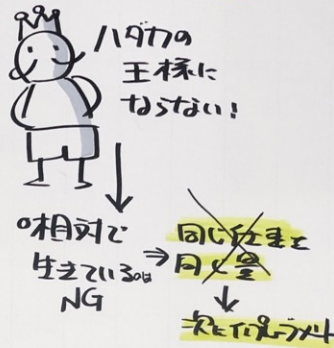 ハダカの
王様に
ならない!
相対で
生きているのは
NG
同じ仕事を
同じ量
次に